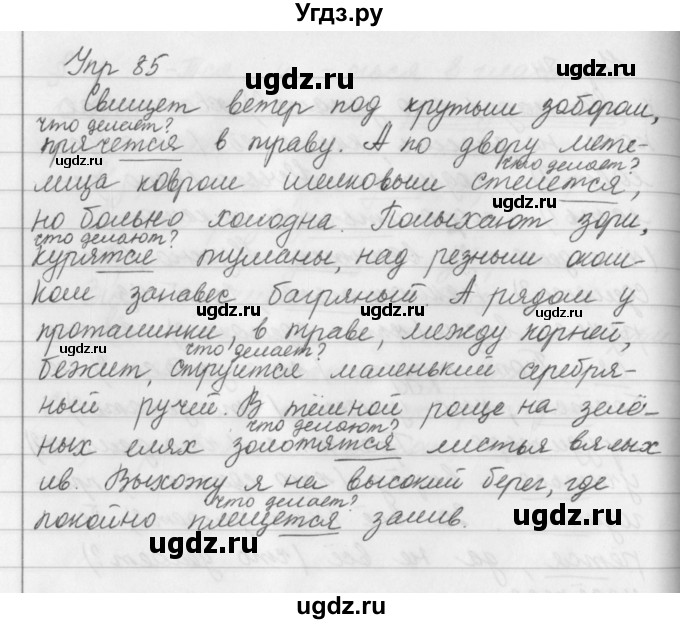 Угдз.ру
Упр 85
Свищет ветер под крутым забором,
что делает?
прячется в траву. А по двору мете-
что делает?
лица ковром шелковым стелется,
но больно холодна. Полыхают зори,
что делают?
курятся туманы, над резным окош-
ком занавес багряный. А рядом у
проталинки, в траве, между корней,
что делает?
бежит, струится маленький серебря-
ный ручей. В тёмной роще на зелё-
что делают?
ных елях золотятся листья вялых
ив. Выхожу я на высокий берег, где
что делает?
покойно плещется залив.
ugdz.ru
ugdz.ru
ugdz.ru
ugdz.ru
ugdz.ru
ugdz.ru
ugdz.ru
ugdz.ru
ugdz.ru
ugdz.ru
ugdz.ru
ugdz.ru